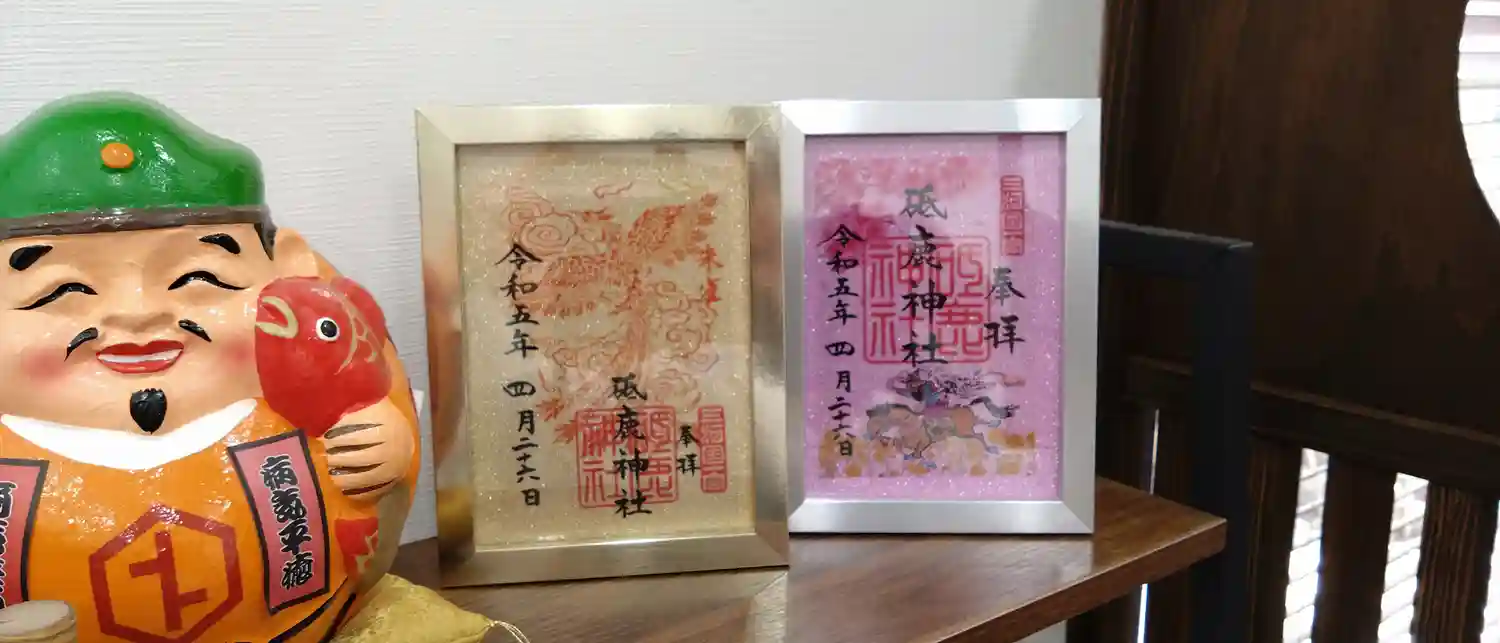 朱雀
奉拝
砥鹿神社
令和五年 四月二十六日
奉拝
砥鹿神社
令和五年 四月二十六日
病気平癒